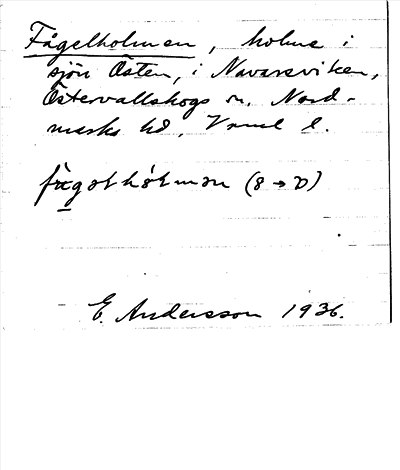 Fågelholmen, holme i
sjön Östen, i Navarsviken,
Östervallskogs sn, Nord-
marks hd, Vrml l.
fågəlhòlmən (8→D)
E. Andersson 1936.